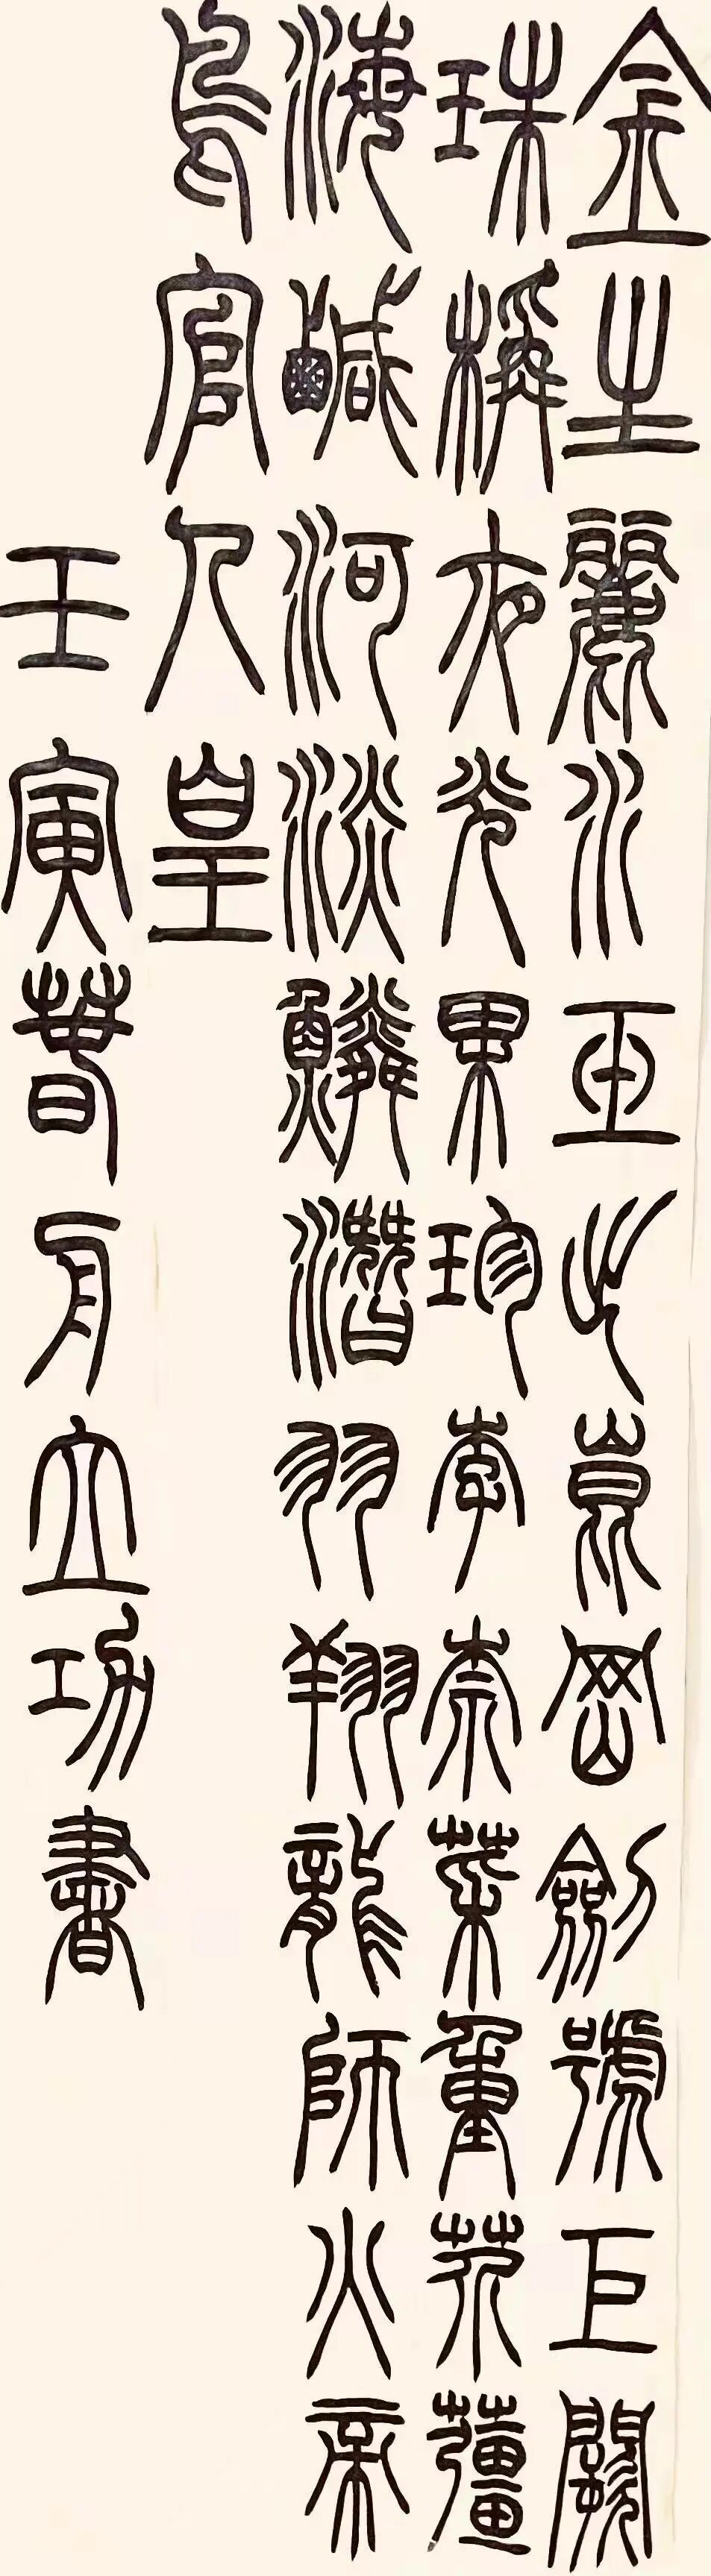 金生麗水玉出崑岡劍號巨闕
珠稱夜光果珍李柰菜重芥薑
海鹹河淡鱗潛羽翔龍師火帝
鳥官人皇
壬寅春月立功書